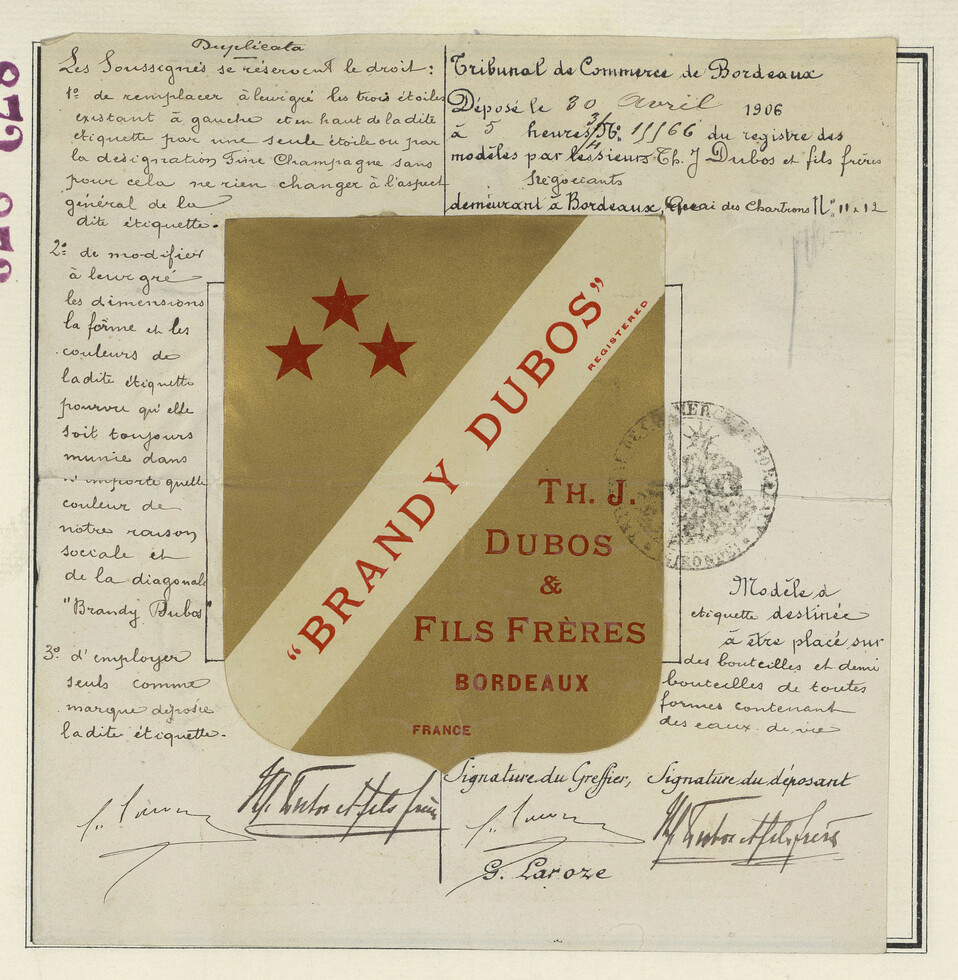 Duplicata
Les Soussignés se réservent le droit:
1º de remplacer à leur gré les trois étoiles
existant à gauche et en haut de la dite
étiquette par une seule étoile ou par
la désignation Fine Champagne sans
pour cela ne rien changer à l'aspect
général de la
dite étiquette.
2º de modifier
à leur gré
les dimensions
la forme et les
couleurs de
ladite étiquette
pourvu qu'elle
soit toujours
munie dans
n'importe quelle
couleur de
notre raison
sociale et
de la diagonale
"Brandy Dubos"
3º d'employer
seuls comme
marque déposée
ladite étiquette.
Tribunal de Commerce de Bordeaux
Déposé le 30 Avril 1906
à 5 heures 3/4 Nº 11566 du registre des
modèles par les sieurs Th. J Dubos et fils frères
Négociants
demeurant à Bordeaux, Quai des Chartrons Nº 11 & 12
"BRANDY DUBOS"
REGISTERED
TH. J.
DUBOS
&
FILS FRÈRES
BORDEAUX
FRANCE
Modèle d
étiquette destinée
à être placé sur
des bouteilles et demi
bouteilles de toutes
formes contenant
des eaux de vie
Signature du Greffier, Signature du déposant
Th. J. Dubos et fils frères
Th. J. Dubos et fils frères
G. Laroze